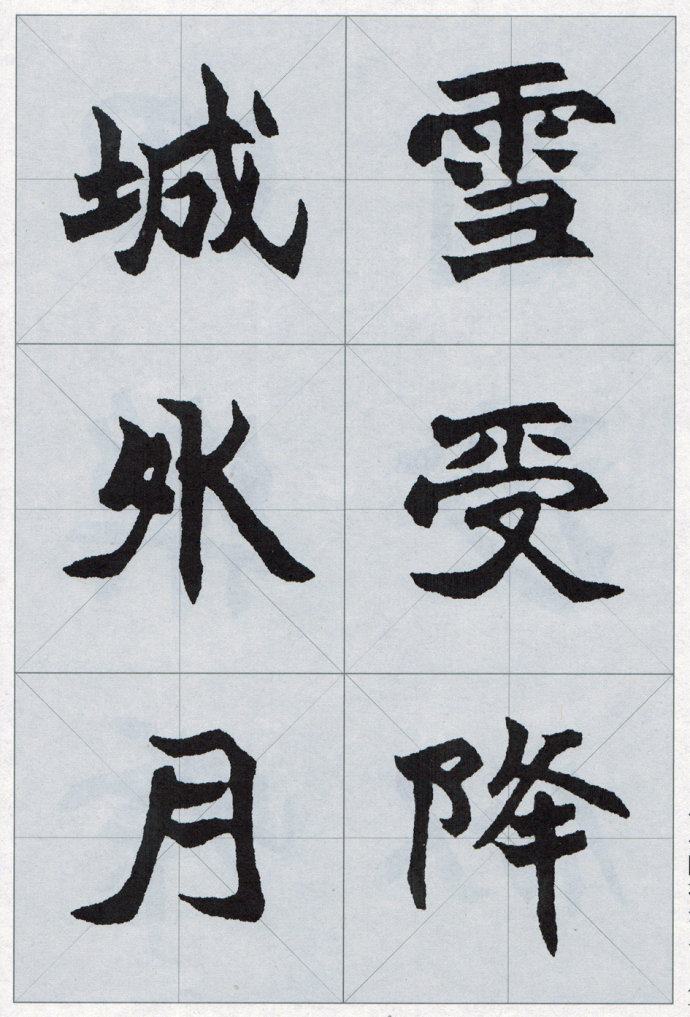 雪受降
城外月